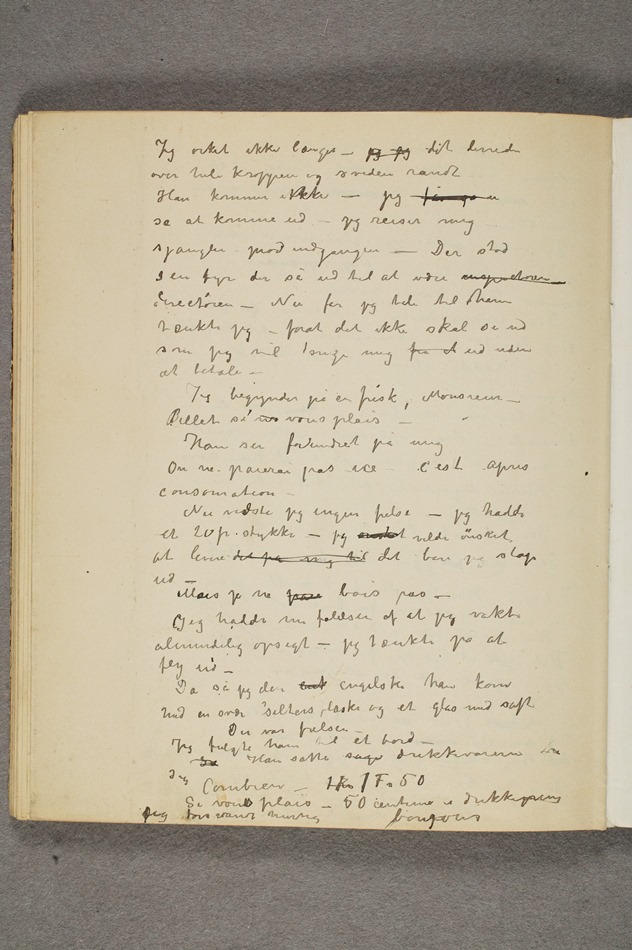 Jeg orket ikke længe – jeg jeg dit derinde
over hele kroppen og sveden randt
Han kommer ikke – jeg
se at komme ud – jeg reiser mig
sjangler mod indgangen – Der stod
en fyr der så ud til at være inspectøren
directøren – Nu før jeg tale til ham
tænkte jeg – forat det ikke skal se ud
som jeg vil snige mig for at ud uden
at betale –
Jeg begynder på en frisk, Monsieur –
Billet s'il vous plais –
Han ser forundret på mig
On ne paierai pas ice c'est apres
consomation –
Nu vidste jeg ingen frelse – jeg hadde
et 20 fr. stykke – jeg ønsket vilde ønsket
at levere det på mig til det bare jeg slap
ud –
Mais je ne bois pas –
Jeg hadde en følelse af at jeg vakte
almindelig opsigt – jeg tænkte på at
fly ud –
Da så jeg den engelske han kom
med en svær selters flaske og et glas med saft
Der var frelsen –
Jeg fulgte ham til et bord –
Han satte drikkevarerne
Jeg Combien – 1 F. 50
Si vous plais – 50 centime i drikkepenge
Jeg forsvandt hurtig bonjour